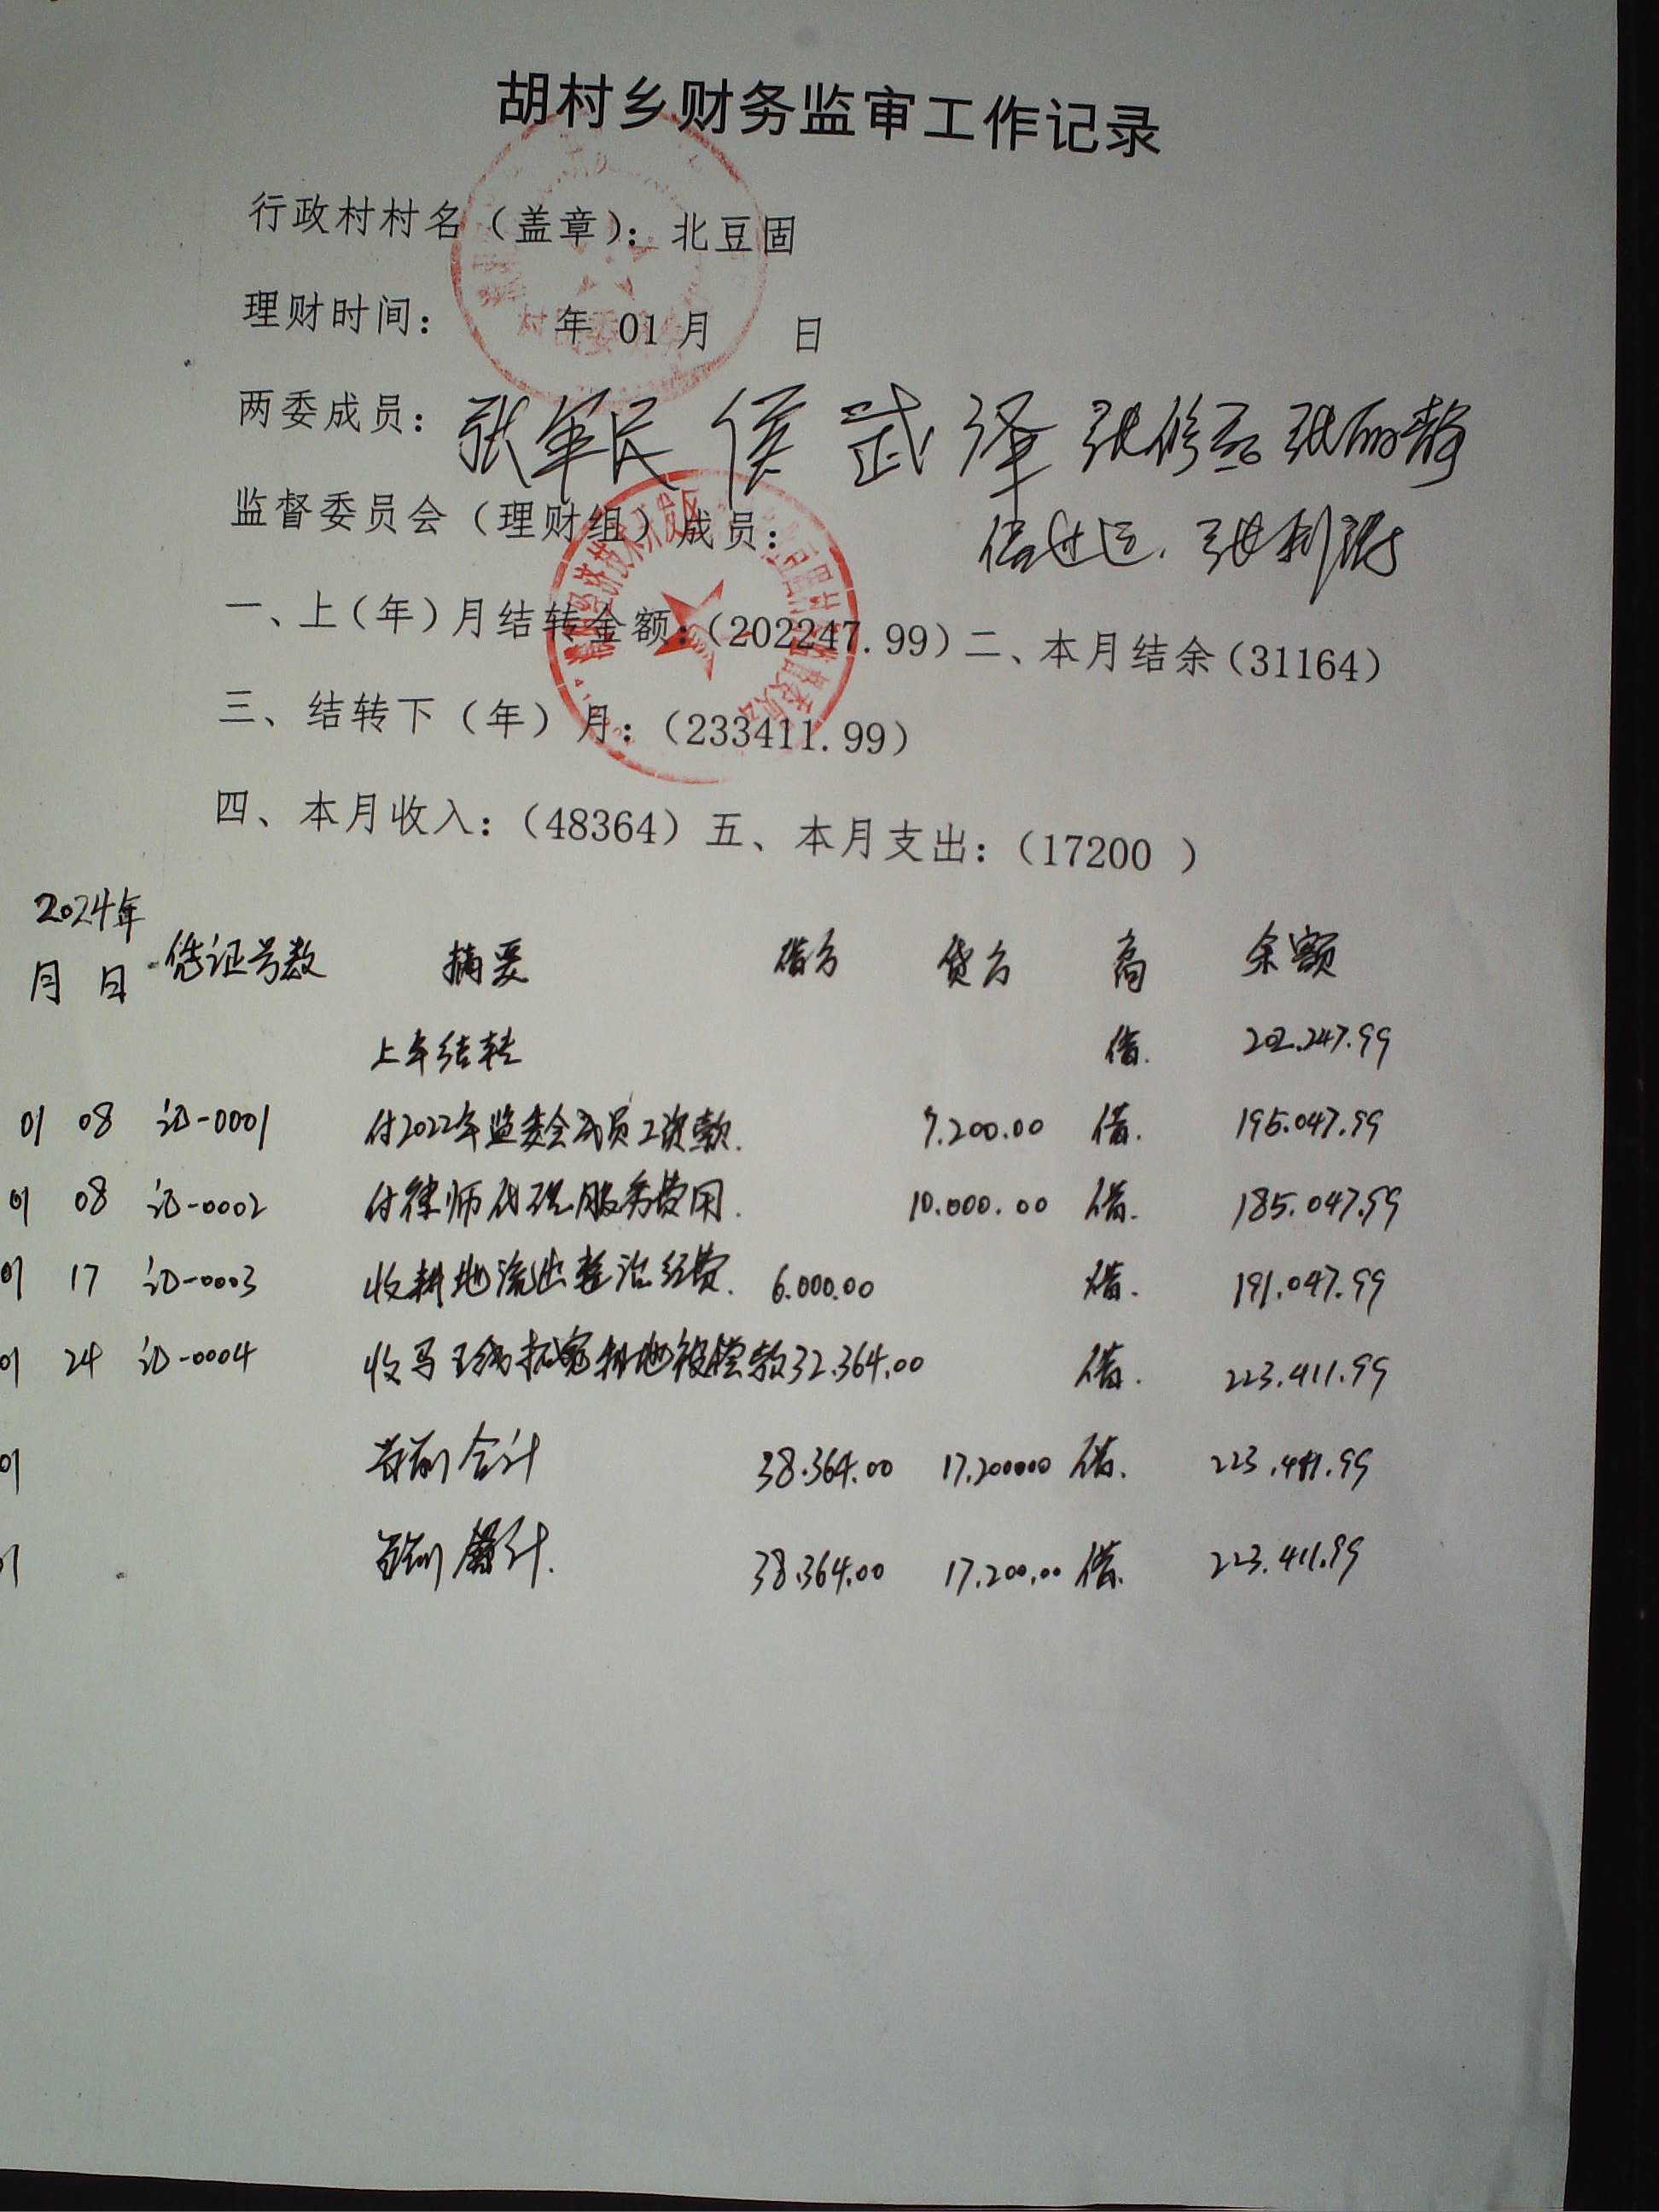 胡村乡财务监审工作记录
行政村村名（盖章）：北豆固
理财时间：　　年 01 月　　日
两委成员：张军民 侯武泽 张修 张丽静
监督委员会（理财组）成员： 张利
一、上（年）月结转金额：（202247.99）二、本月结余（31164）
三、结转下（年）月：（233411.99）
四、本月收入：（48364）五、本月支出：（17200 ）
2024年
月 日 凭证号数 摘要 借方 贷方 余额
上年结转 借. 202.247.99
01 08 记-0001 付2022年监委会成员工资款. 7.200.00 借. 195.047.99
01 08 记-0002 付律师代理服务费用. 10.000.00 借. 185.047.99
01 17 记-0003 收耕地流出整治经费. 6.000.00 借. 191.047.99
01 24 记-0004 收马 耕地 偿款 32.364.00 借. 223.411.99
01 合计 38.364.00 17.200000 借. 223.411.99
01 累计. 38.364.00 17.200.00 借. 223.411.99